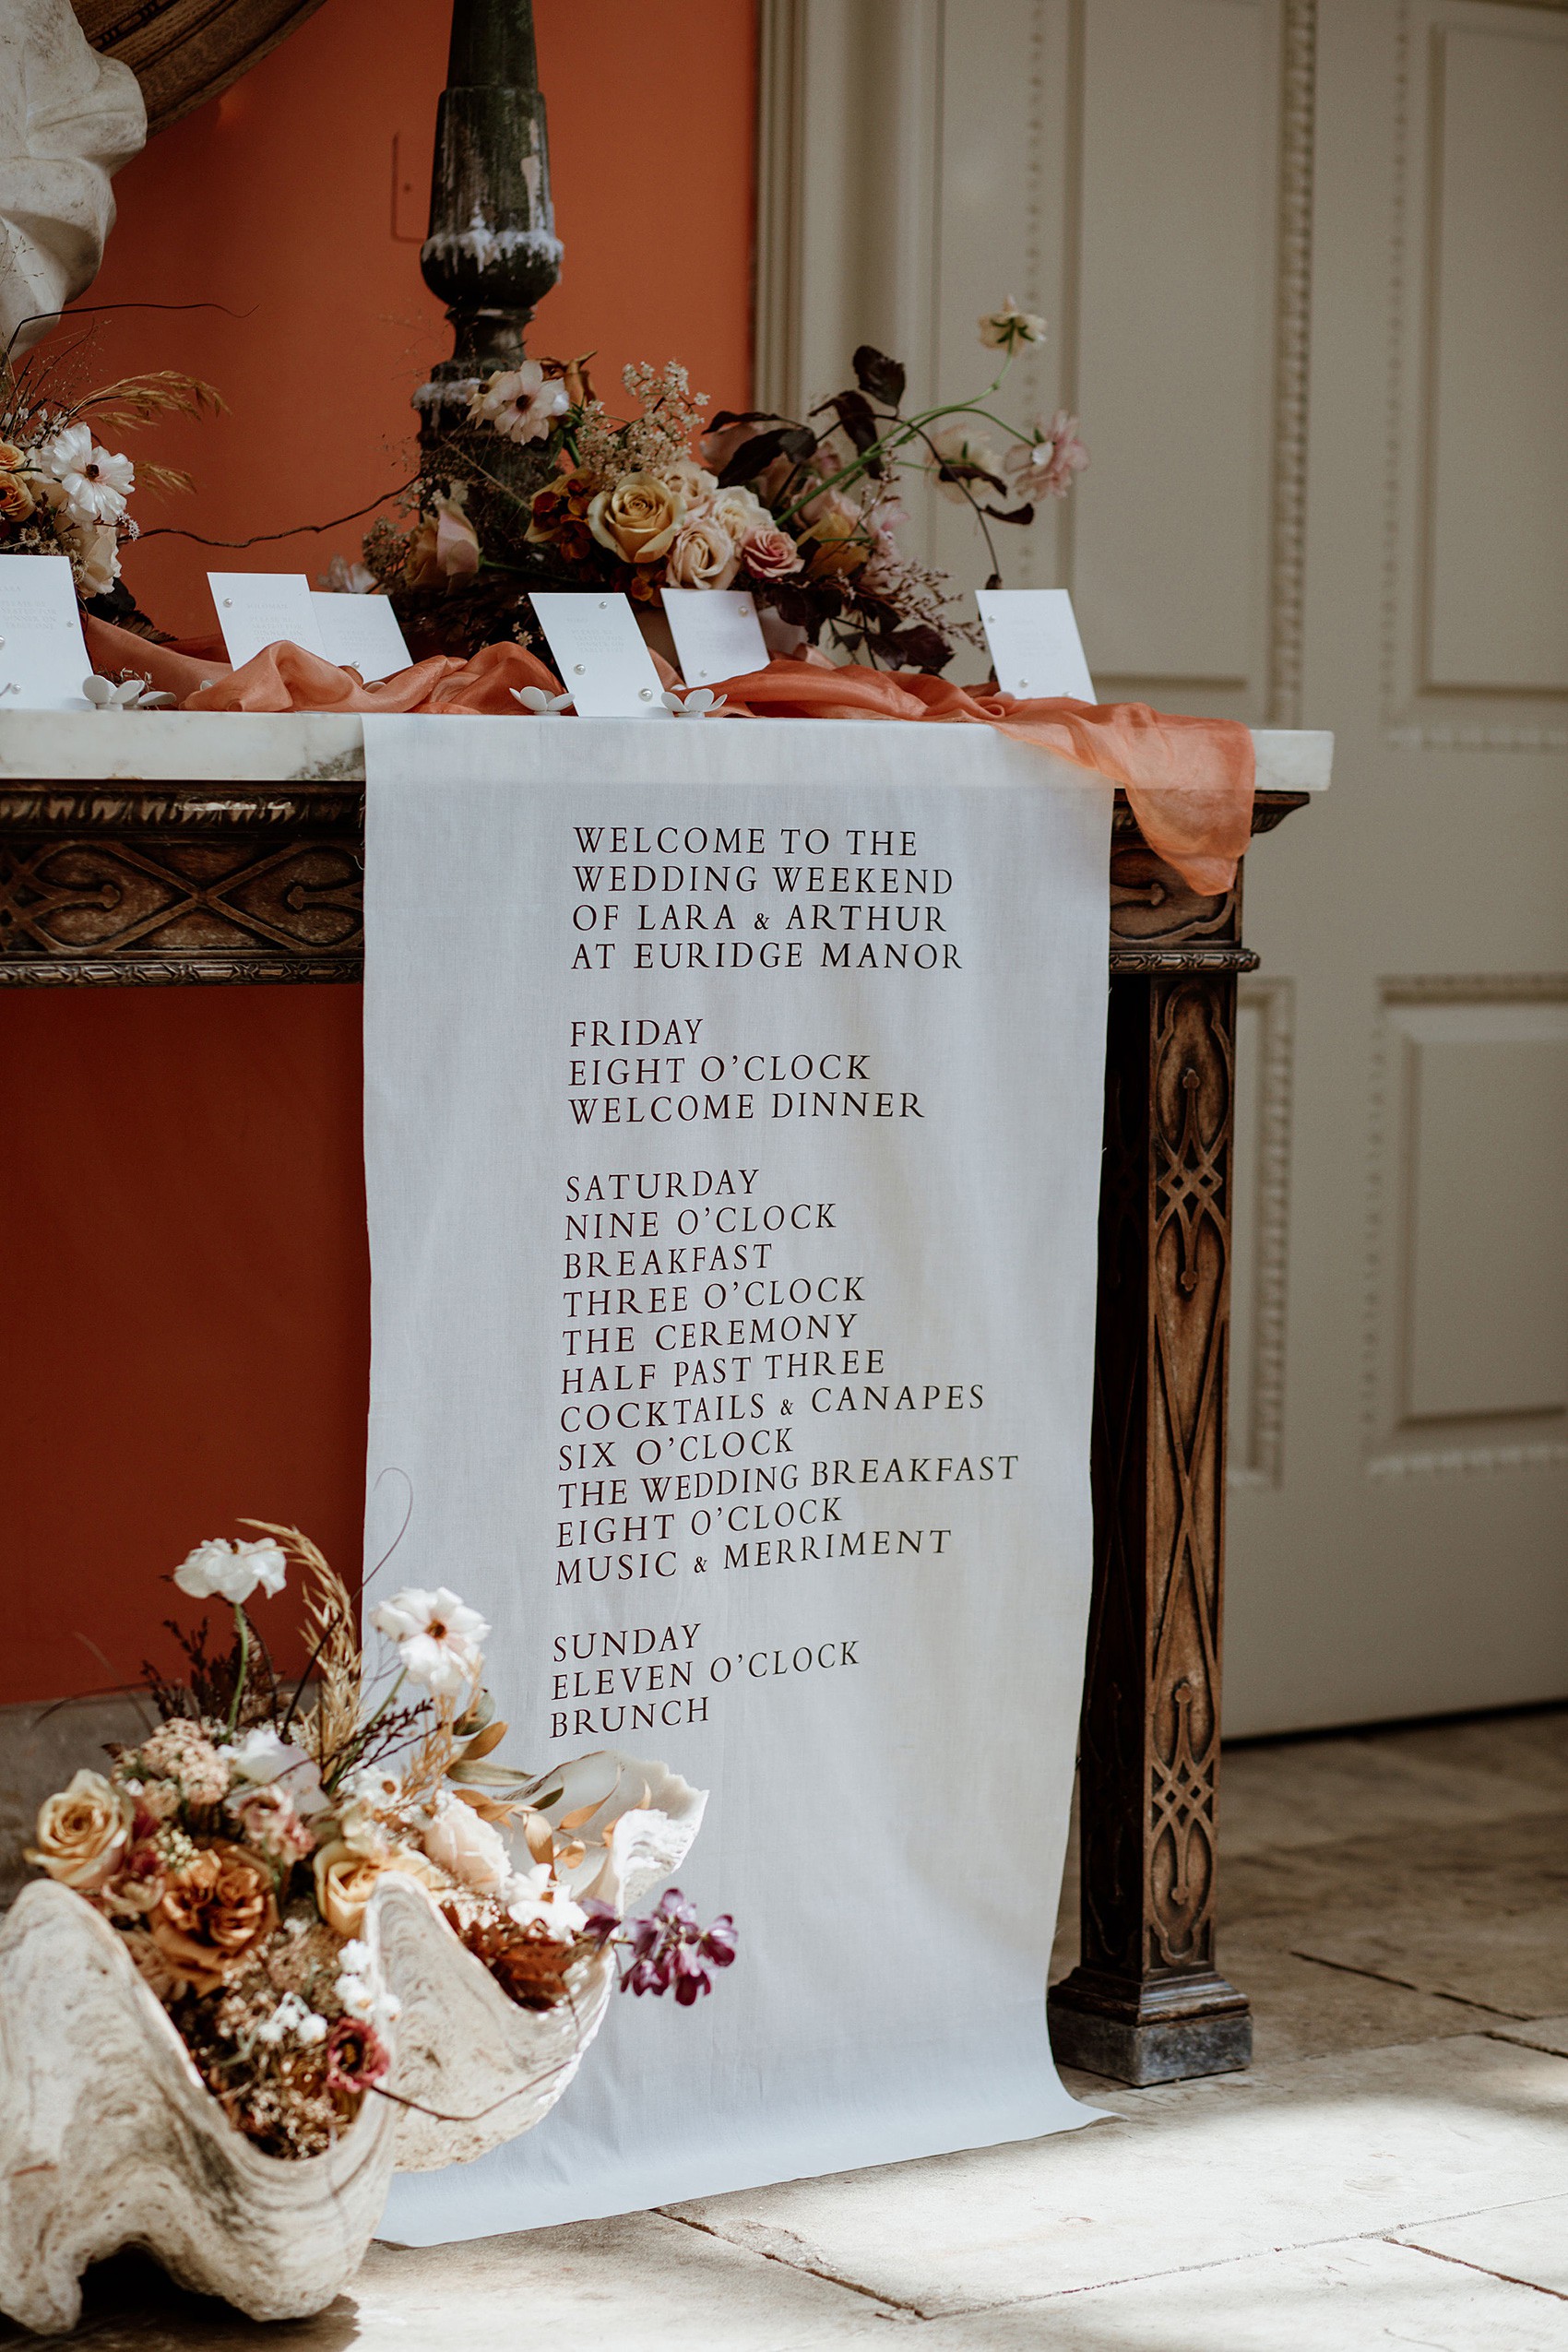 WELCOME TO THE
WEDDING WEEKEND
OF LARA & ARTHUR
AT EURIDGE MANOR
FRIDAY
EIGHT O’CLOCK
WELCOME DINNER
SATURDAY
NINE O’CLOCK
BREAKFAST
THREE O’CLOCK
THE CEREMONY
HALF PAST THREE
COCKTAILS & CANAPES
SIX O’CLOCK
THE WEDDING BREAKFAST
EIGHT O’CLOCK
MUSIC & MERRIMENT
SUNDAY
ELEVEN O’CLOCK
BRUNCH